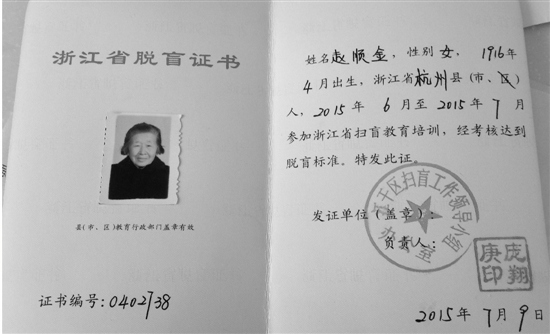 浙江省脱盲证书
县(市、区)教育行政部门盖章有效
证书编号：0402738
姓名赵顺金，性别女，1916年
4月出生，浙江省杭州县（市、区）
人，2015年6月至2015年7月
参加浙江省扫盲教育培训，经考核达到
脱盲标准。特发此证。
发证单位（盖章）：
负责人：
干区扫盲工作领导小组
办公室
庞翔
庚印
2015年7月9日